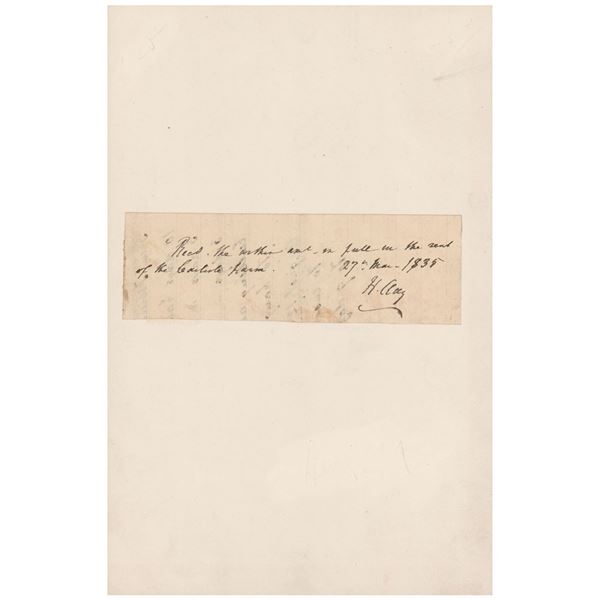 Recd. the within amt. in full for the rent
of the Carlisle farm. 27th. Mar. 1835
H. Clay